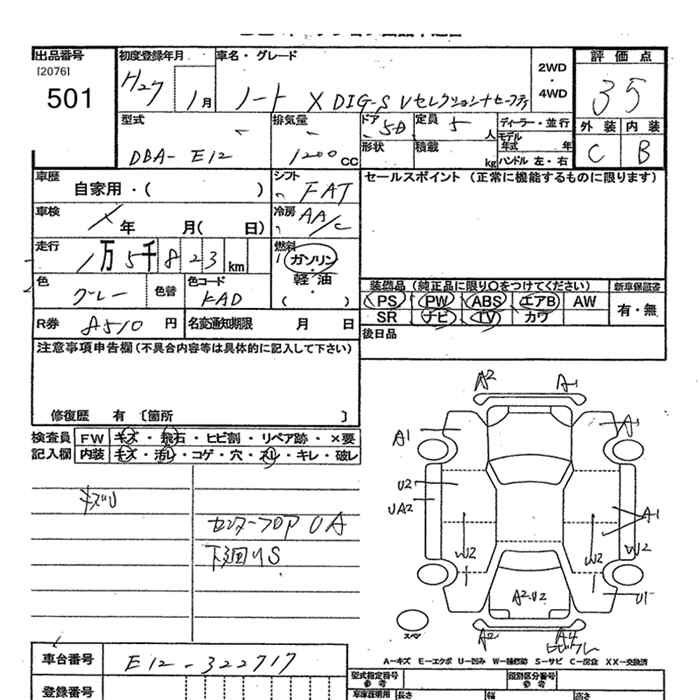 出品番号
[2076]
501
初度登録年月
H27
1月
車名・グレード
ノート X DIG-S Vセレクション+セーフティ
2WD
・
4WD
評価点
3 5
外装
内装
C
B
型式
DBA- E12
排気量
1200 CC
ドア
5D
形状
定員
5
人
積載
kg
ディーラー・並行
モデル
年式
年
ハンドル 左・右
車歴
自家用・( )
シフト
FAT
セールスポイント (正常に機能するものに限ります)
車検
X
年 月( 日)
冷房
AA/C
走行
1万5千823km
燃料
ガソリン
・
軽油
・
( )
色
グレー
色替
色コード
KAD
装備品 (純正品に限り○をつけてください)
新車保証書
PS
PW
ABS
エアB
AW
有・無
SR
ナビ
TV
カワ
R券
8510 円
名変通知期限 月 日
後日品
注意事項申告欄 (不具合内容等は具体的に記入して下さい)
修復歴 有 〔箇所 〕
検査員
記入欄
FW
キズ・飛石・ヒビ割・リペア跡・×要
内装
キズ・汚レ・コゲ・穴・スレ・キレ・破レ
キズU
センターフロアUA
下廻りS
A2
A1
A1
A1
U2
UA2
A1
W2
W2
W2
U1
A2.U2
スペ
A2
A4
A-キズ E-エクボ U-凹み W-補修跡 S-サビ C-腐食 XX-交換済
車台番号
E12-322717
登録番号
型式指定番号
参考
類別区分番号
参考
車庫証明用
長さ
幅
高さ